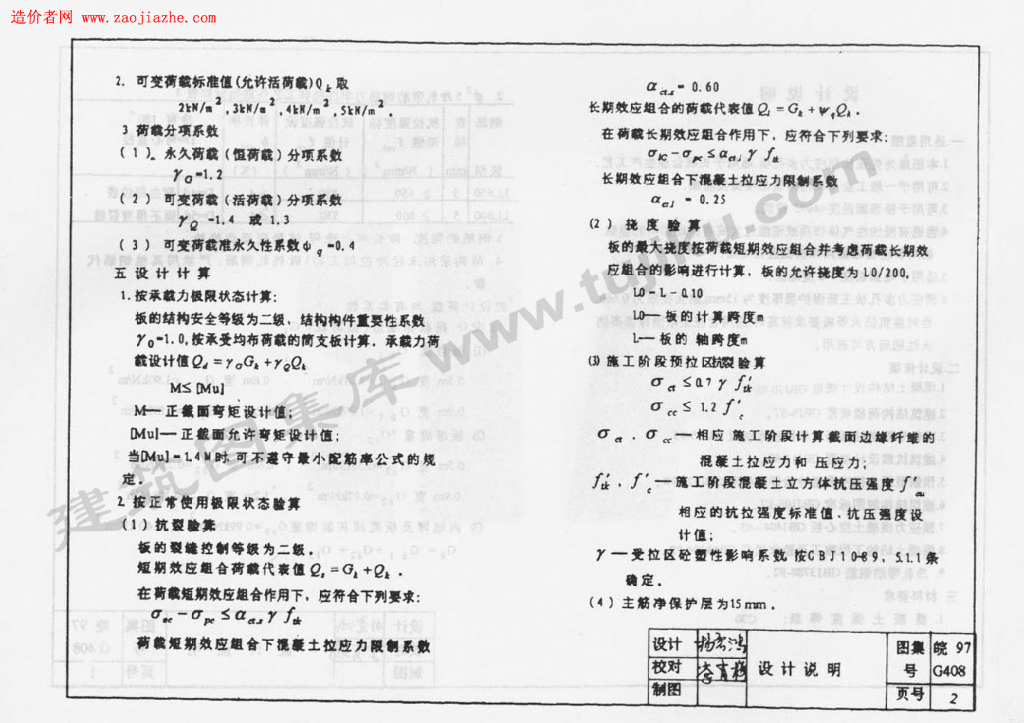 造价者网 www.zaojiazhe.com
2. 可变荷载标准值(允许活荷载)Qk取
2kN/m²,3kN/m²,4kN/m²,5kN/m².
3 荷载分项系数
(1). 永久荷载(恒荷载)分项系数
γG=1.2
(2) 可变荷载(活荷载)分项系数
γQ=1.4 或 1.3
(3) 可变荷载准永久性系数φq=0.4
五 设计计算
1.按承载力极限状态计算:
板的结构安全等级为二级,结构构件重要性系数
γ0=1.0,按承受均布荷载的简支板计算,承载力荷
载设计值Qd=γGGk+γQQk
M≤[Mu]
M—正截面弯矩设计值;
[Mu]—正截面允许弯矩设计值;
当[Mu]=1.4M时,可不遵守最小配筋率公式的规
定.
2.按正常使用极限状态验算
(1)抗裂验算
板的裂缝控制等级为二级.
短期效应组合荷载代表值Qs=Gk+Qk.
在荷载短期效应组合作用下,应符合下列要求:
σsc-σpc≤αct.sγftk
荷载短期效应组合下混凝土拉应力限制系数
αct.s=0.60
长期效应组合的荷载代表值Ql=Gk+ψqQk.
在荷载长期效应组合作用下,应符合下列要求:
σlc-σpc≤αctlγftk
长期效应组合下混凝土拉应力限制系数
αctl=0.25
(2) 挠度验算
板的最大挠度按荷载短期效应组合并考虑荷载长期效
应组合的影响进行计算,板的允许挠度为L0/200,
L0=L-0.10
L0—板的计算跨度m
L—板的轴跨度m
(3)施工阶段预拉区抗裂验算
σct≤0.7γf'tk
σcc≤1.2f'c
σct、σcc—相应施工阶段计算截面边缘纤维的
混凝土拉应力和压应力;
f'tk、f'c—施工阶段混凝土立方体抗压强度f'cu
相应的抗拉强度标准值、抗压强度设
计值;
γ—受拉区砼塑性影响系数,按GBJ10-89,5.1.1条
确定.
(4)主筋净保护层为15mm.
设计
校对
制图
设计说明
图集号 皖97G408
页号 2
建筑图集库 www.tujiku.com